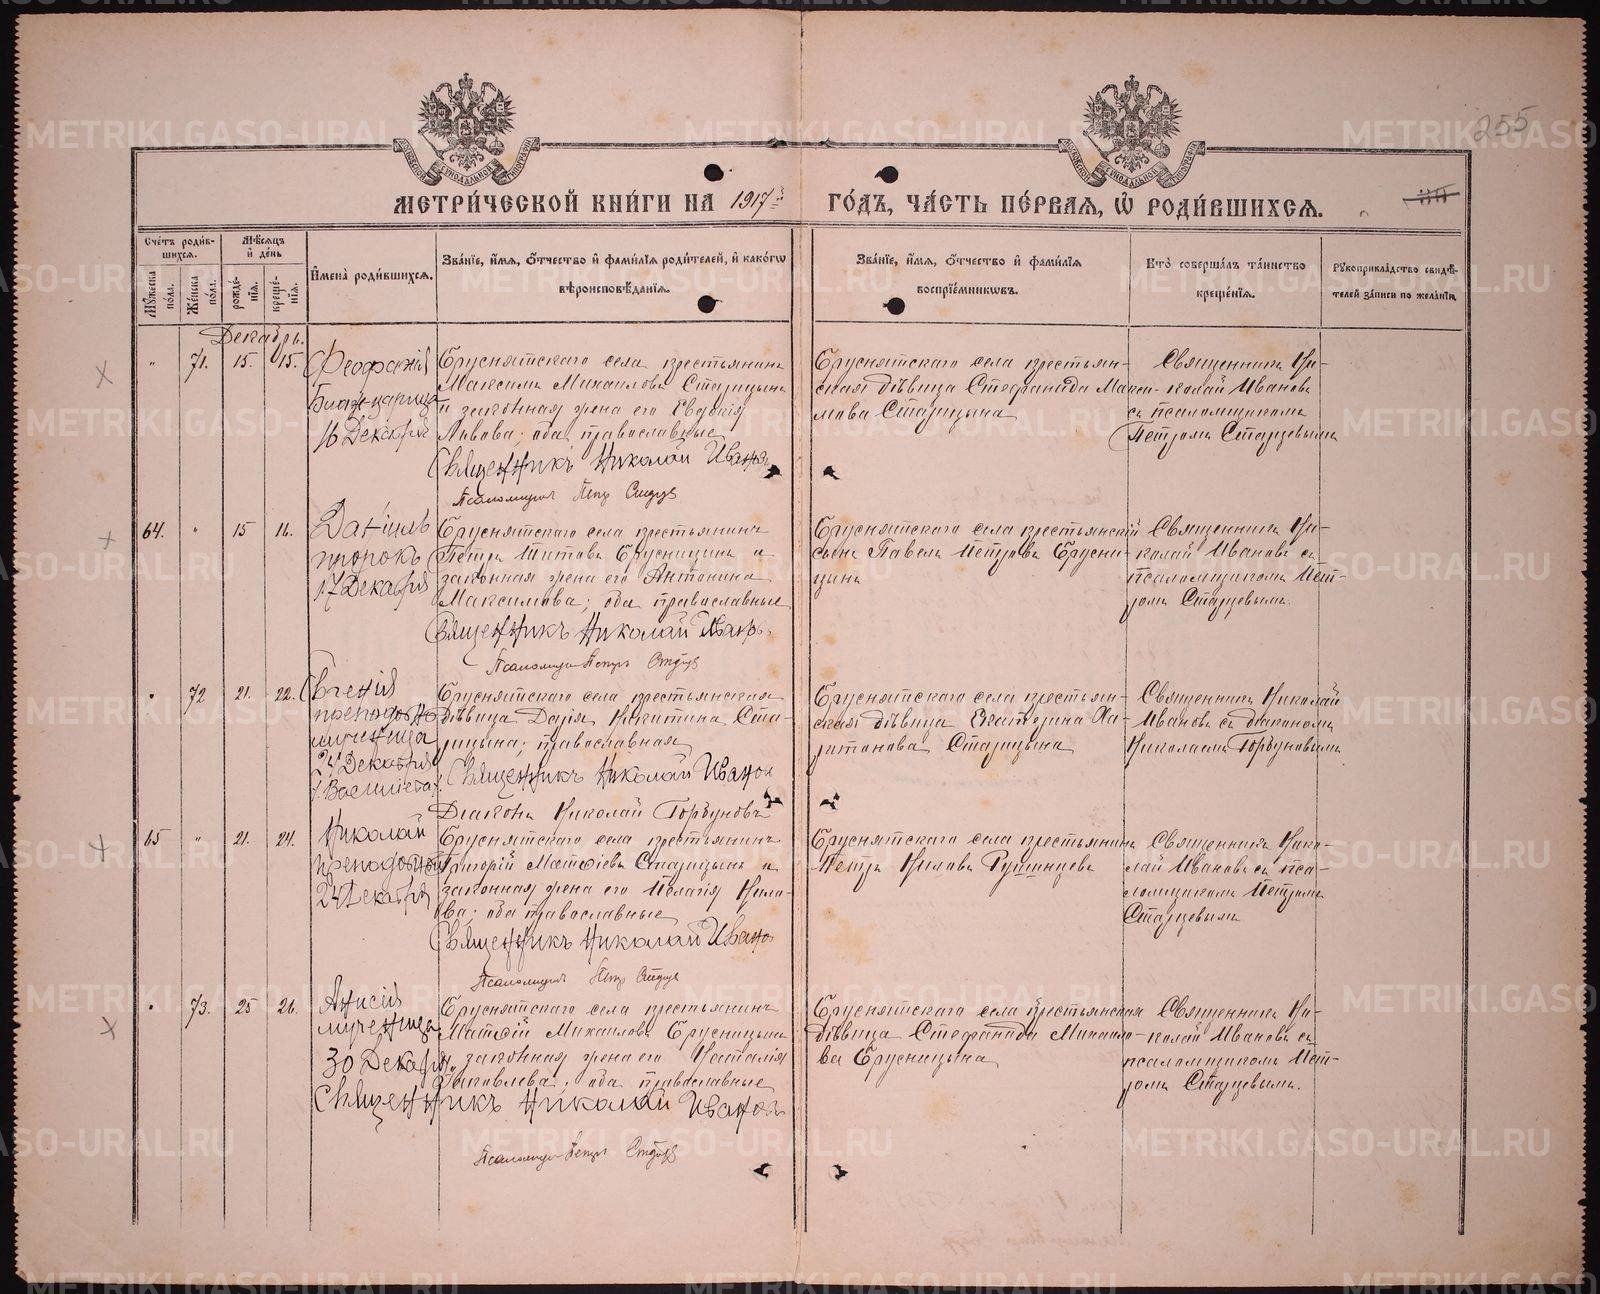 255
МЕТРИ́ЧЕСКОЙ КНИ́ГИ НА 1917 й
ГО́ДЪ, ЧА́СТЬ ПЕ́РВАЯ, Ѡ҆ РОДИ́ВШИХСЯ.
Сче́тъ роди́вшихся.
Мѣ́сяцъ и҆ де́нь
Мꙋ́жеска по́ла.
Же́нска по́ла.
рожде́нїя.
креще́нїя.
И҆мена̀ роди́вшихся.
Зва́нїе, и҆́мя, ѻ҆́тчество и҆ фами́лїя роди́телей, и҆ како́гѡ
вѣроисповѣ́данїя.
Зва́нїе, и҆́мя, ѻ҆́тчество и҆ фами́лїя
воспрїе́мникѡвъ.
Кто̀ соверша́лъ та́инство
креще́нїя.
Рꙋкоприкла́дство свидѣ́-
телей за́писи по жела́нїи.
Декабрь.
" 71. 15. 15.
Феофанія
Благ. царица
16 Декабря
Бруснятскаго села крестьянинъ
Максимъ Михаиловъ Старицынъ
и законная жена его Евдокія
Львова; оба православные
Священникъ Николай Ивановъ
Псаломщикъ Петр Старцев
Бруснятскаго села крестьян-
ская дѣвица Стефанида Макси-
мова Старицына
Священникъ Ни-
колай Ивановъ
съ псаломщикомъ
Петромъ Старцевымъ
64. " 15 16.
Даніилъ
пророкъ
17 Декабря
Бруснятскаго села крестьянинъ
Петръ Титовъ Брусницынъ и
законная жена его Антонина
Максимова; оба православные
Священникъ Николай Ивановъ
Псаломщик Петръ Старцев
Бруснятскаго села крестьянскій
сынъ Павелъ Петровъ Брусни-
цынъ
Священникъ Ни-
колай Ивановъ съ
псаломщикомъ Пет-
ромъ Старцевымъ.
" 72 21. 22.
Евгенія
преподобно
мученица
24 Декабря
Бруснятскаго села крестьянская
дѣвица Дарія Никитина Ста-
рицына; православная
Священникъ Николай Иванов
Діаконъ Николай Горбуновъ
Бруснятскаго села крестьян-
ская дѣвица Екатерина Ха-
ритонова Старицына
Священникъ Николай
Ивановъ съ діакономъ
Николаемъ Горбуновымъ
65 " 21. 24.
Николай
преподобный
24 Декабря
Бруснятскаго села крестьянинъ
Григорій Матѳіевъ Старицынъ и
законная жена его Пелагія Нило-
ва; оба православные
Священникъ Николай Иванов
Псаломщикъ Петр Старцев
Бруснятскаго села крестьянинъ
Петръ Ниловъ Румянцевъ
Священникъ Нико-
лай Ивановъ съ пса-
ломщикомъ Петромъ
Старцевымъ
" 73. 25 26.
Анисія
мученица
30 Декабря
Бруснятскаго села крестьянинъ
Матѳій Михаиловъ Брусницынъ
и законная жена его Наталія
Яковлева; оба православные
Священникъ Николай Ивановъ
Псаломщик Петръ Старцев
Бруснятскаго села крестьянская
дѣвица Стефанида Михаило-
ва Брусницына
Священникъ Ни-
колай Ивановъ съ
псаломщикомъ Пет-
ромъ Старцевымъ.
METRIKI.GASO-URAL.RU